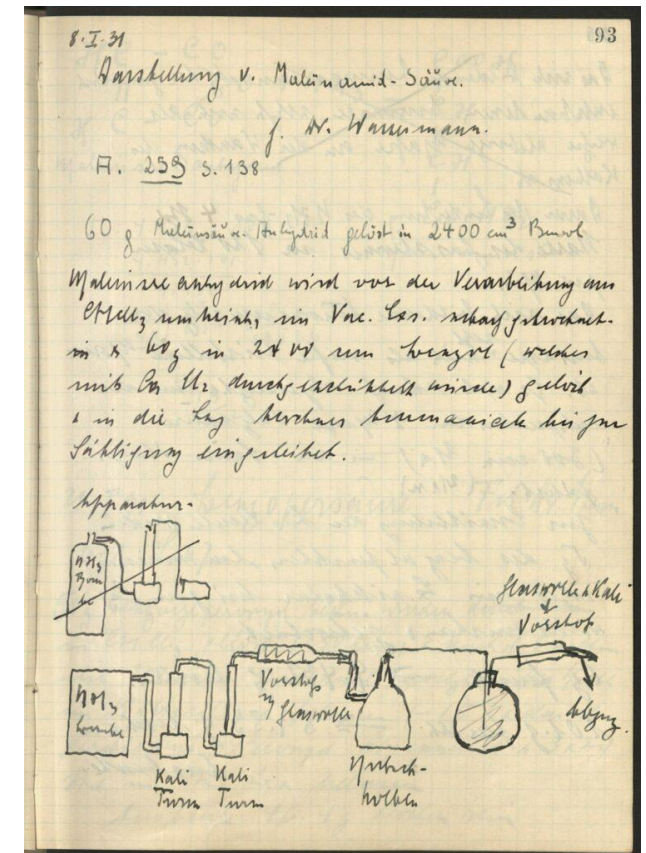 8·I·31
93
Darstellung v. Maleinamid-Säure.
f. Dr. Wassermann.
A. 259 S. 138
60 g Maleinsäure Anhydrid gelöst in 2400 cm³ Benzol
Maleinsre anhydrid wird vor der Verarbeitung aus
CHCl₃ umkrist, im Vac. Exs. scharf getrocknet.
60g in 2400 ccm Benzol (welches
mit Ca Cl₂ durchgeschüttelt wurde) gelöst
in die Lsg trockenes Ammoniak bis zur
Sättigung eingeleitet.
Apparatur-
NH₃
Bom
be
Glaswolle & Kali
Vorstoß
NH₃
bombe
Vorstoß
m Glaswolle
Abzug.
Kali Kali
Turm Turm
Nutsch-
kolben